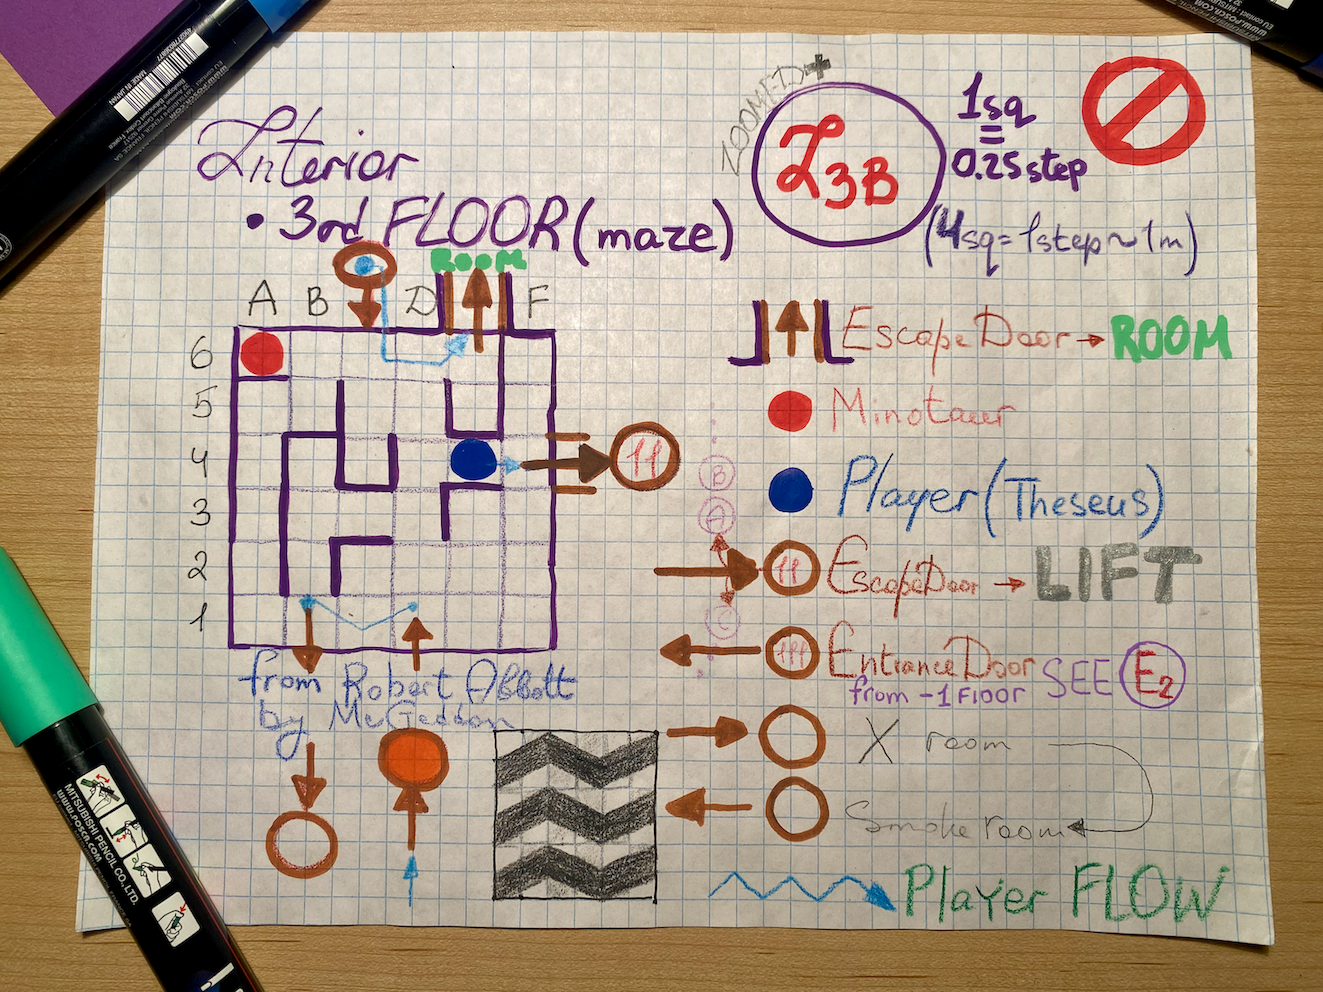 Interior
• 3rd FLOOR (maze)
ZOOM-ED +
I3B
1sq
=
0.25 step
(4sq = 1step ~ 1m)
ROOM
A B D F
6
5
4
3
2
1
Escape Door → ROOM
Minotaur
B
A
Player (Theseus)
Escape Door → LIFT
C
Entrance Door SEE E2
from -1 FLOOR
from Robert Abbott
by McGeddon
X room
Smoke room
Player FLOW
MITSUBISHI PENCIL CO., LTD.
www.POSCA.com
MADE IN JAPAN